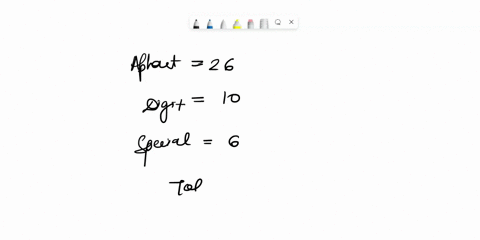 Alphabet = 26
Digit = 10
Special = 6
Tot